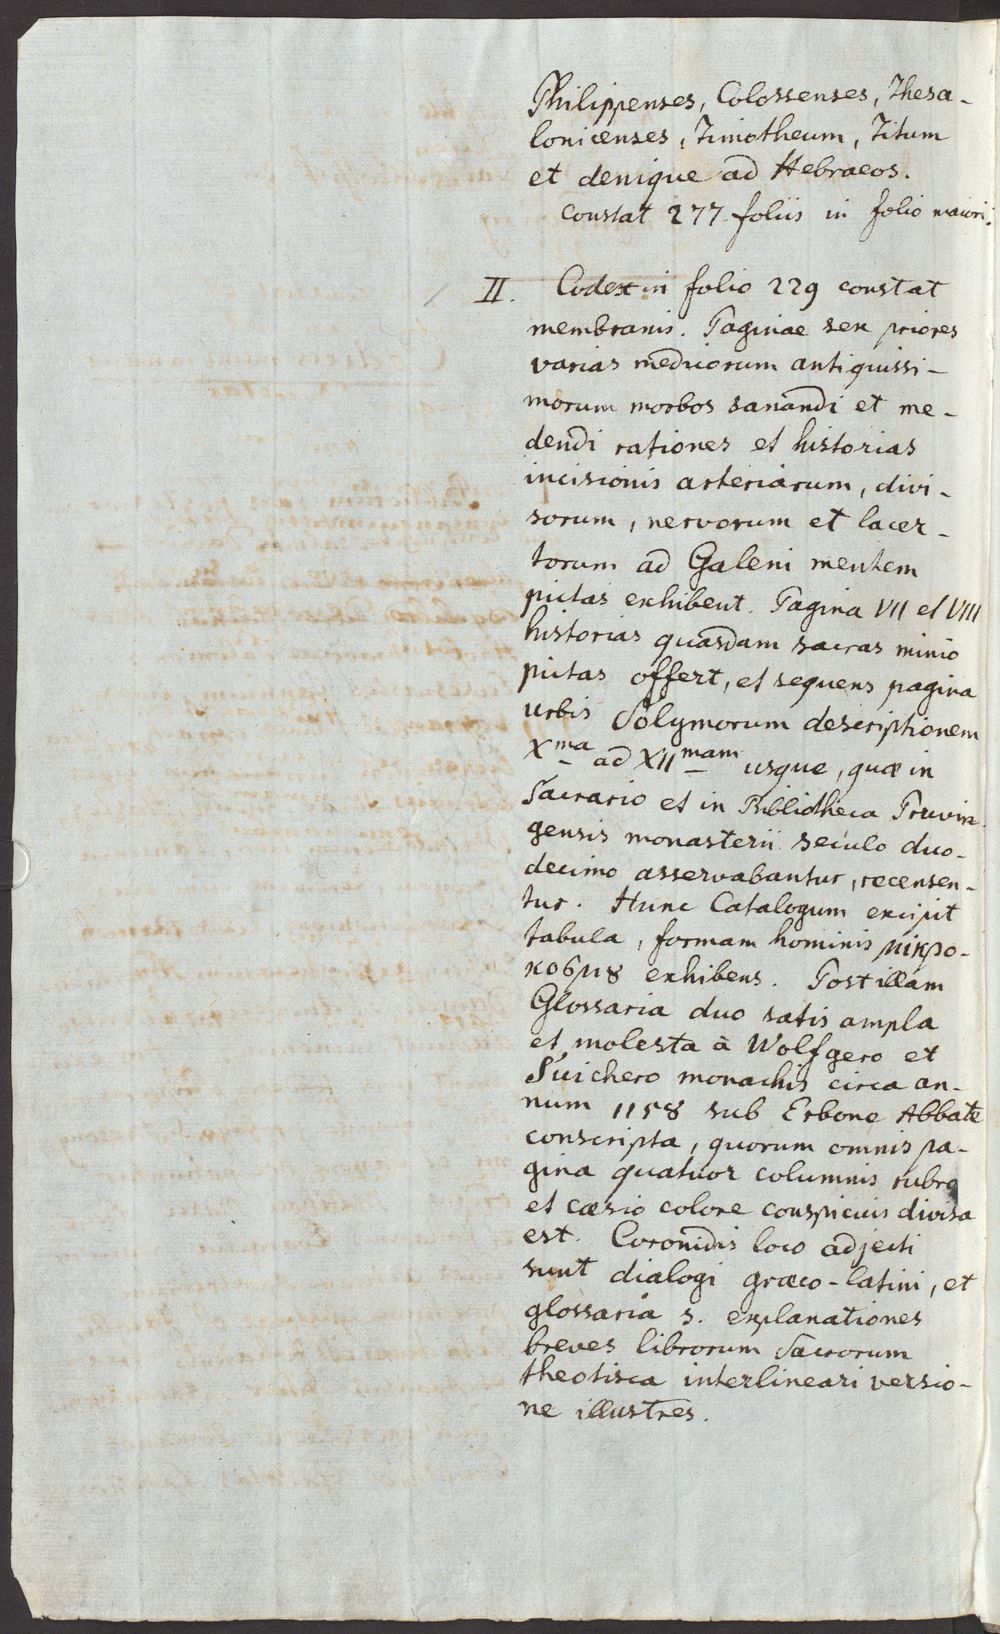 Philippenses, Colossenses, Thesa-
lonicenses, Timotheum, Titum
et denique ad Hebraeos.
constat 277 foliis in folio maiori.
II. Codex in folio 229 constat
membranis. Paginae sex priores
varias medicorum antiquissi-
morum morbos sanandi et me-
dendi rationes et historias
incisionis arteriarum, divi-
sorum, nervorum et lacer-
torum ad Galeni mentem
pictas exhibent. Pagina VII et VIII
historias quasdam sacras minio
pictas offert, et sequens pagina
urbis Solymorum descriptionem
Xma ad XIImam usque, quæ in
Sacrario et in Bibliotheca Pruvin-
gensis monasterii seculo duo-
decimo asservabantur, recensen-
tur. Hunc Catalogum excipit
tabula, formam hominis μικρο-
κοσμȣ exhibens. Post illam
Glossaria duo satis ampla
et molesta à Wolfgero et
Suichero monachis circa an-
num 1158 sub Erbone Abbate
conscripta, quorum omnis pa-
gina quatuor columnis rubro
et cæsio colore conspicuis divisa
est. Coronidis loco adjecti
sunt dialogi græco-latini, et
glossaria s. explanationes
breves librorum Sacrorum
theotisca interlineari versio-
ne illustres.